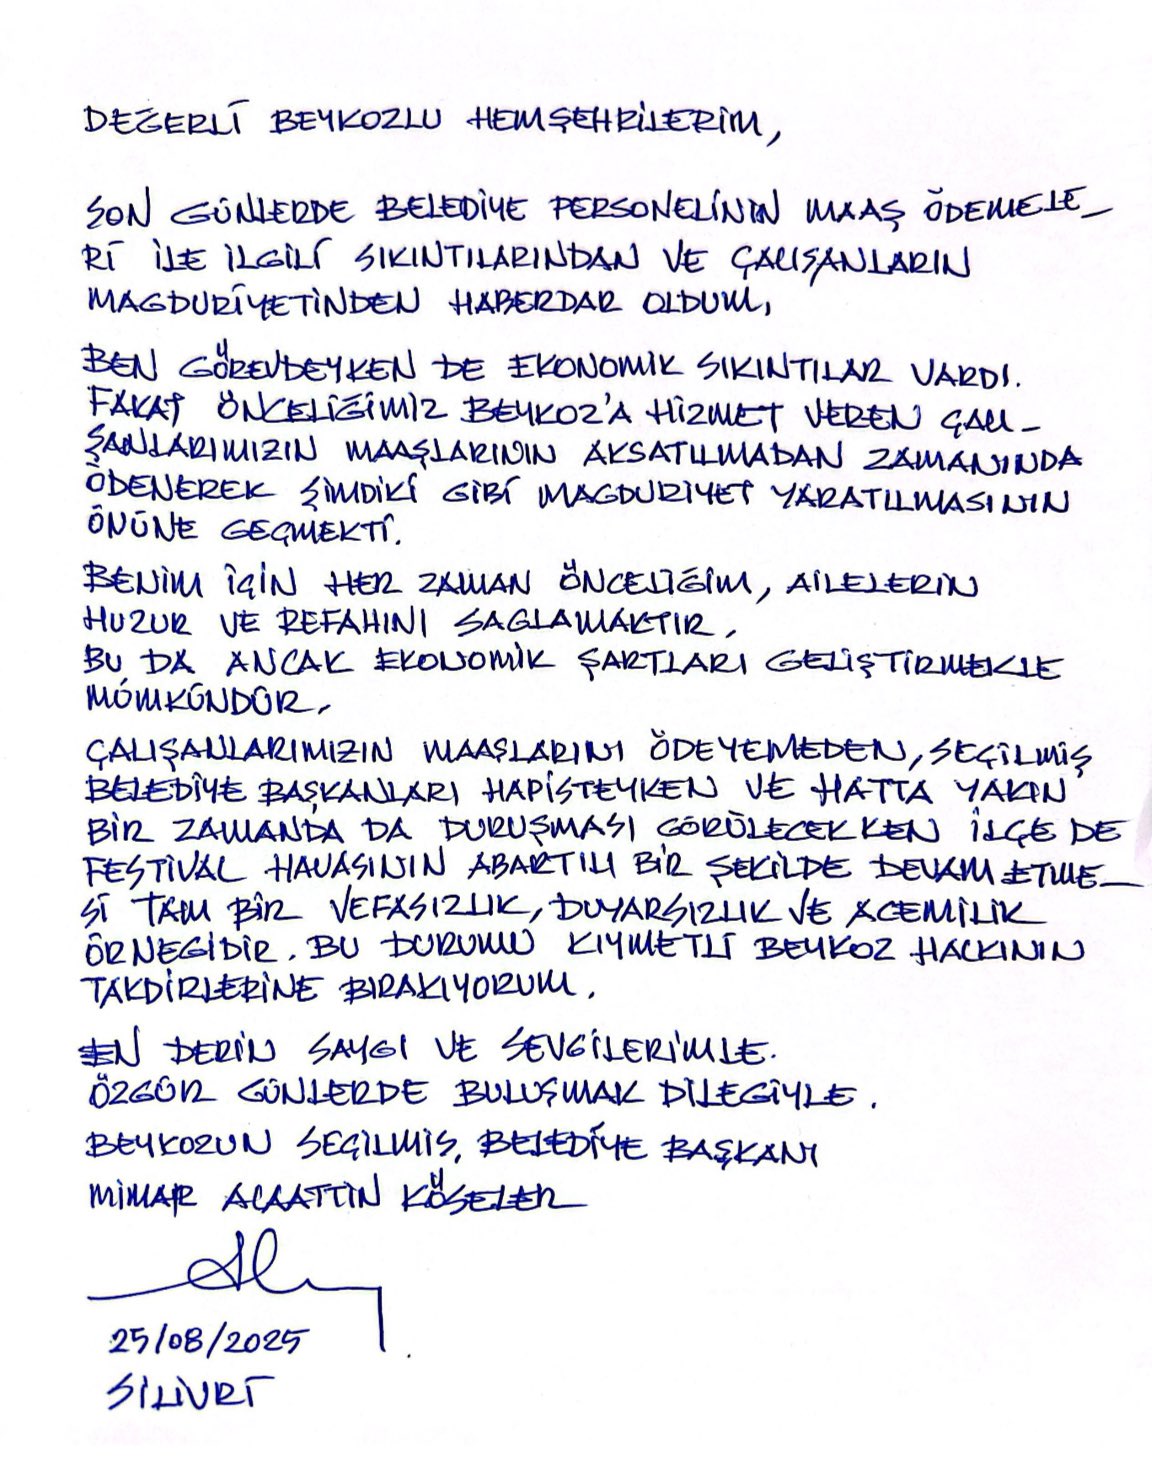 DEĞERLİ BEYKOZLU HEMŞEHRİLERİM,
SON GÜNLERDE BELEDİYE PERSONELİNİN MAAŞ ÖDEMELE_
Rİ İLE İLGİLİ SIKINTILARINDAN VE ÇALIŞANLARIN
MAGDURİYETİNDEN HABERDAR OLDUM,
BEN GÖREVDEYKEN DE EKONOMİK SIKINTILAR VARDI.
FAKAT ÖNCELİĞİMİZ BEYKOZ'A HİZMET VEREN ÇALI_
ŞANLARIMIZIN MAAŞLARININ AKSATILMADAN ZAMANINDA
ÖDENEREK ŞİMDİKİ GİBİ MAGDURİYET YARATILMASININ
ÖNÜNE GEÇMEKTİ.
BENİM İÇİN HER ZAMAN ÖNCELİĞİM, AİLELERİN
HUZUR VE REFAHINI SAGLAMAKTIR,
BU DA ANCAK EKONOMİK ŞARTLARI GELİŞTİRMEKLE
MÜMKÜNDÜR,
ÇALIŞANLARIMIZIN MAAŞLARINI ÖDEYEMEDEN, SEÇİLMİŞ
BELEDİYE BAŞKANLARI HAPİSTEYKEN VE HATTA YAKIN
BİR ZAMANDA DA DURUŞMASI GÖRÜLECEKKEN İLÇE DE
FESTİVAL HAVASININ ABARTILI BİR ŞEKİLDE DEVAM ETME_
Sİ TAM BİR VEFASIZLIK, DUYARSIZLIK VE ACEMİLİK
ÖRNEGİDİR. BU DURUMU KIYMETLİ BEYKOZ HALKININ
TAKDİRLERİNE BIRAKIYORUM.
EN DERİN SAYGI VE SEVGİLERİMLE.
ÖZGÜR GÜNLERDE BULUŞMAK DİLEGİYLE.
BEYKOZUN SEÇİLMİŞ BELEDİYE BAŞKANI
MİMAR ALAATTİN KÖSELER
25/08/2025
SİLİVRİ